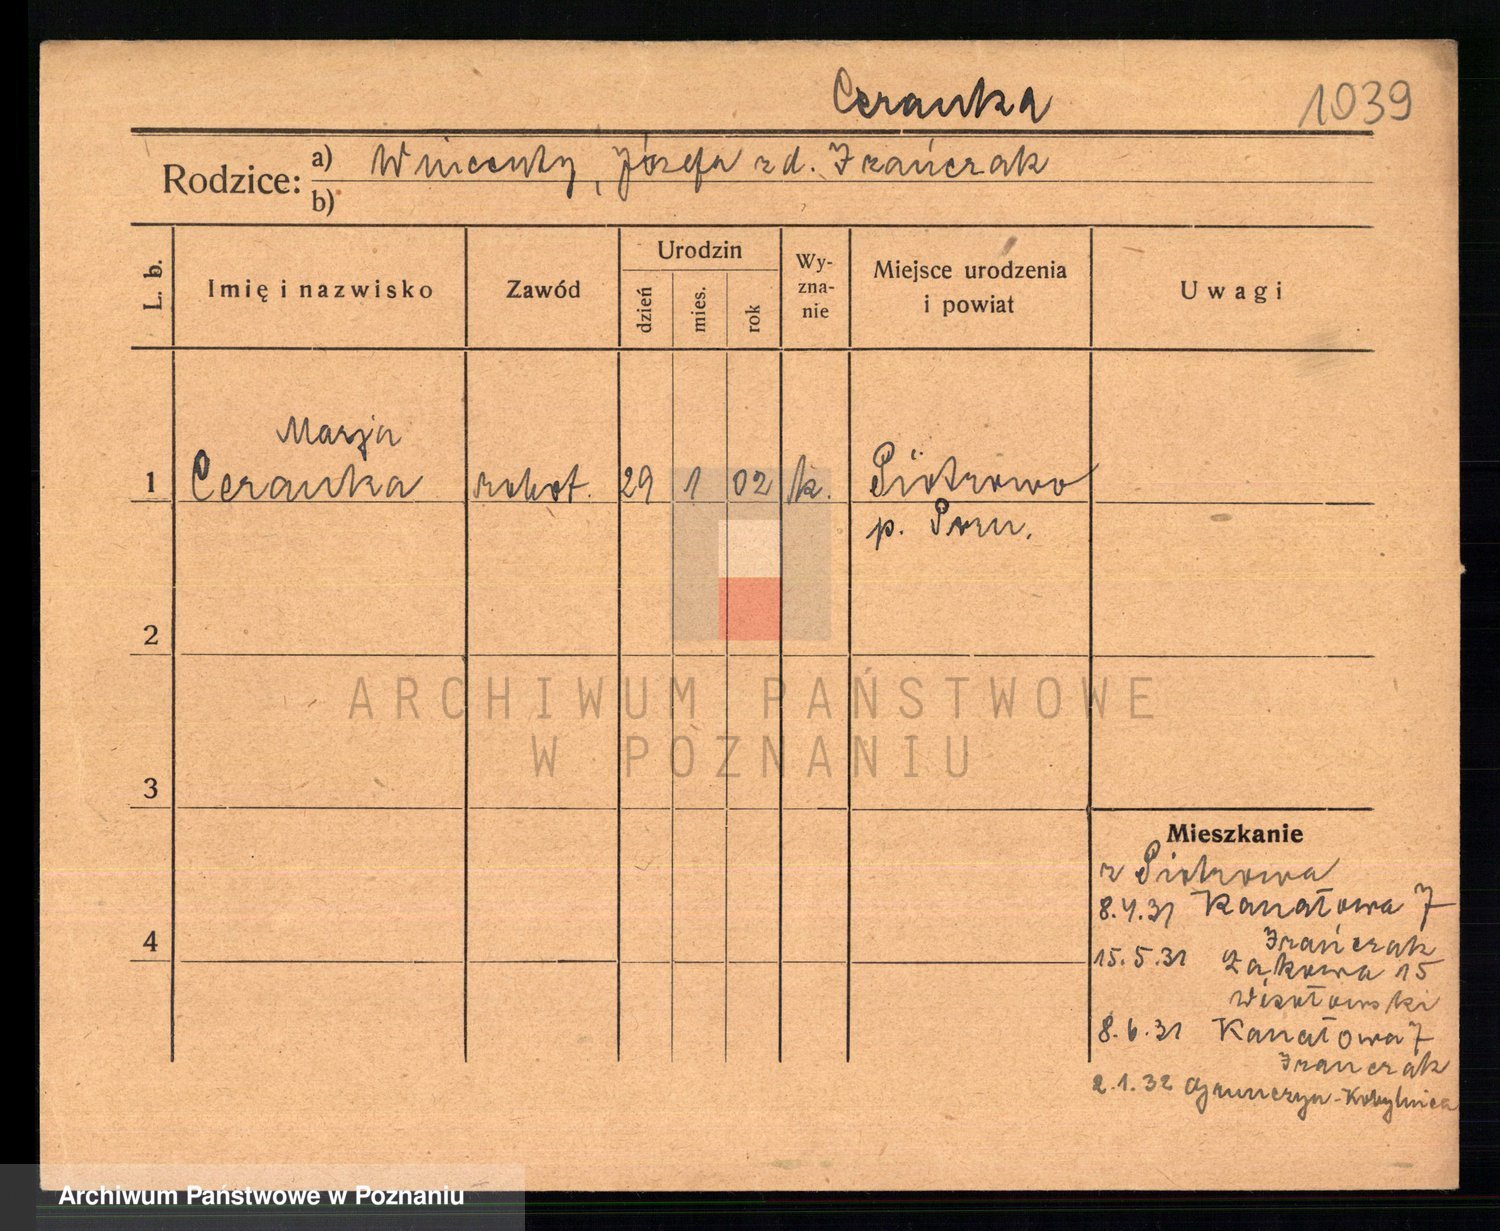 Ceranka 1039
Rodzice: a) Wincenty, Józefa zd. Frańczak
b)
L. b. Imię i nazwisko Zawód Urodzin dzień mies. rok Wy-zna-nie Miejsce urodzenia i powiat Uwagi
Marja
1 Ceranka robot. 29 1 02 k. Piotrowo
p. Pozn.
2
ARCHIWUM PAŃSTWOWE
W POZNANIU
3
Mieszkanie
z Piotrowa
8.4.31 Kanałowa 7
Frańczak
4
15.5.31 Łąkowa 15
8.6.31 Kanałowa 7
Franczak
2.1.32 Kobylnica
Archiwum Państwowe w Poznaniu